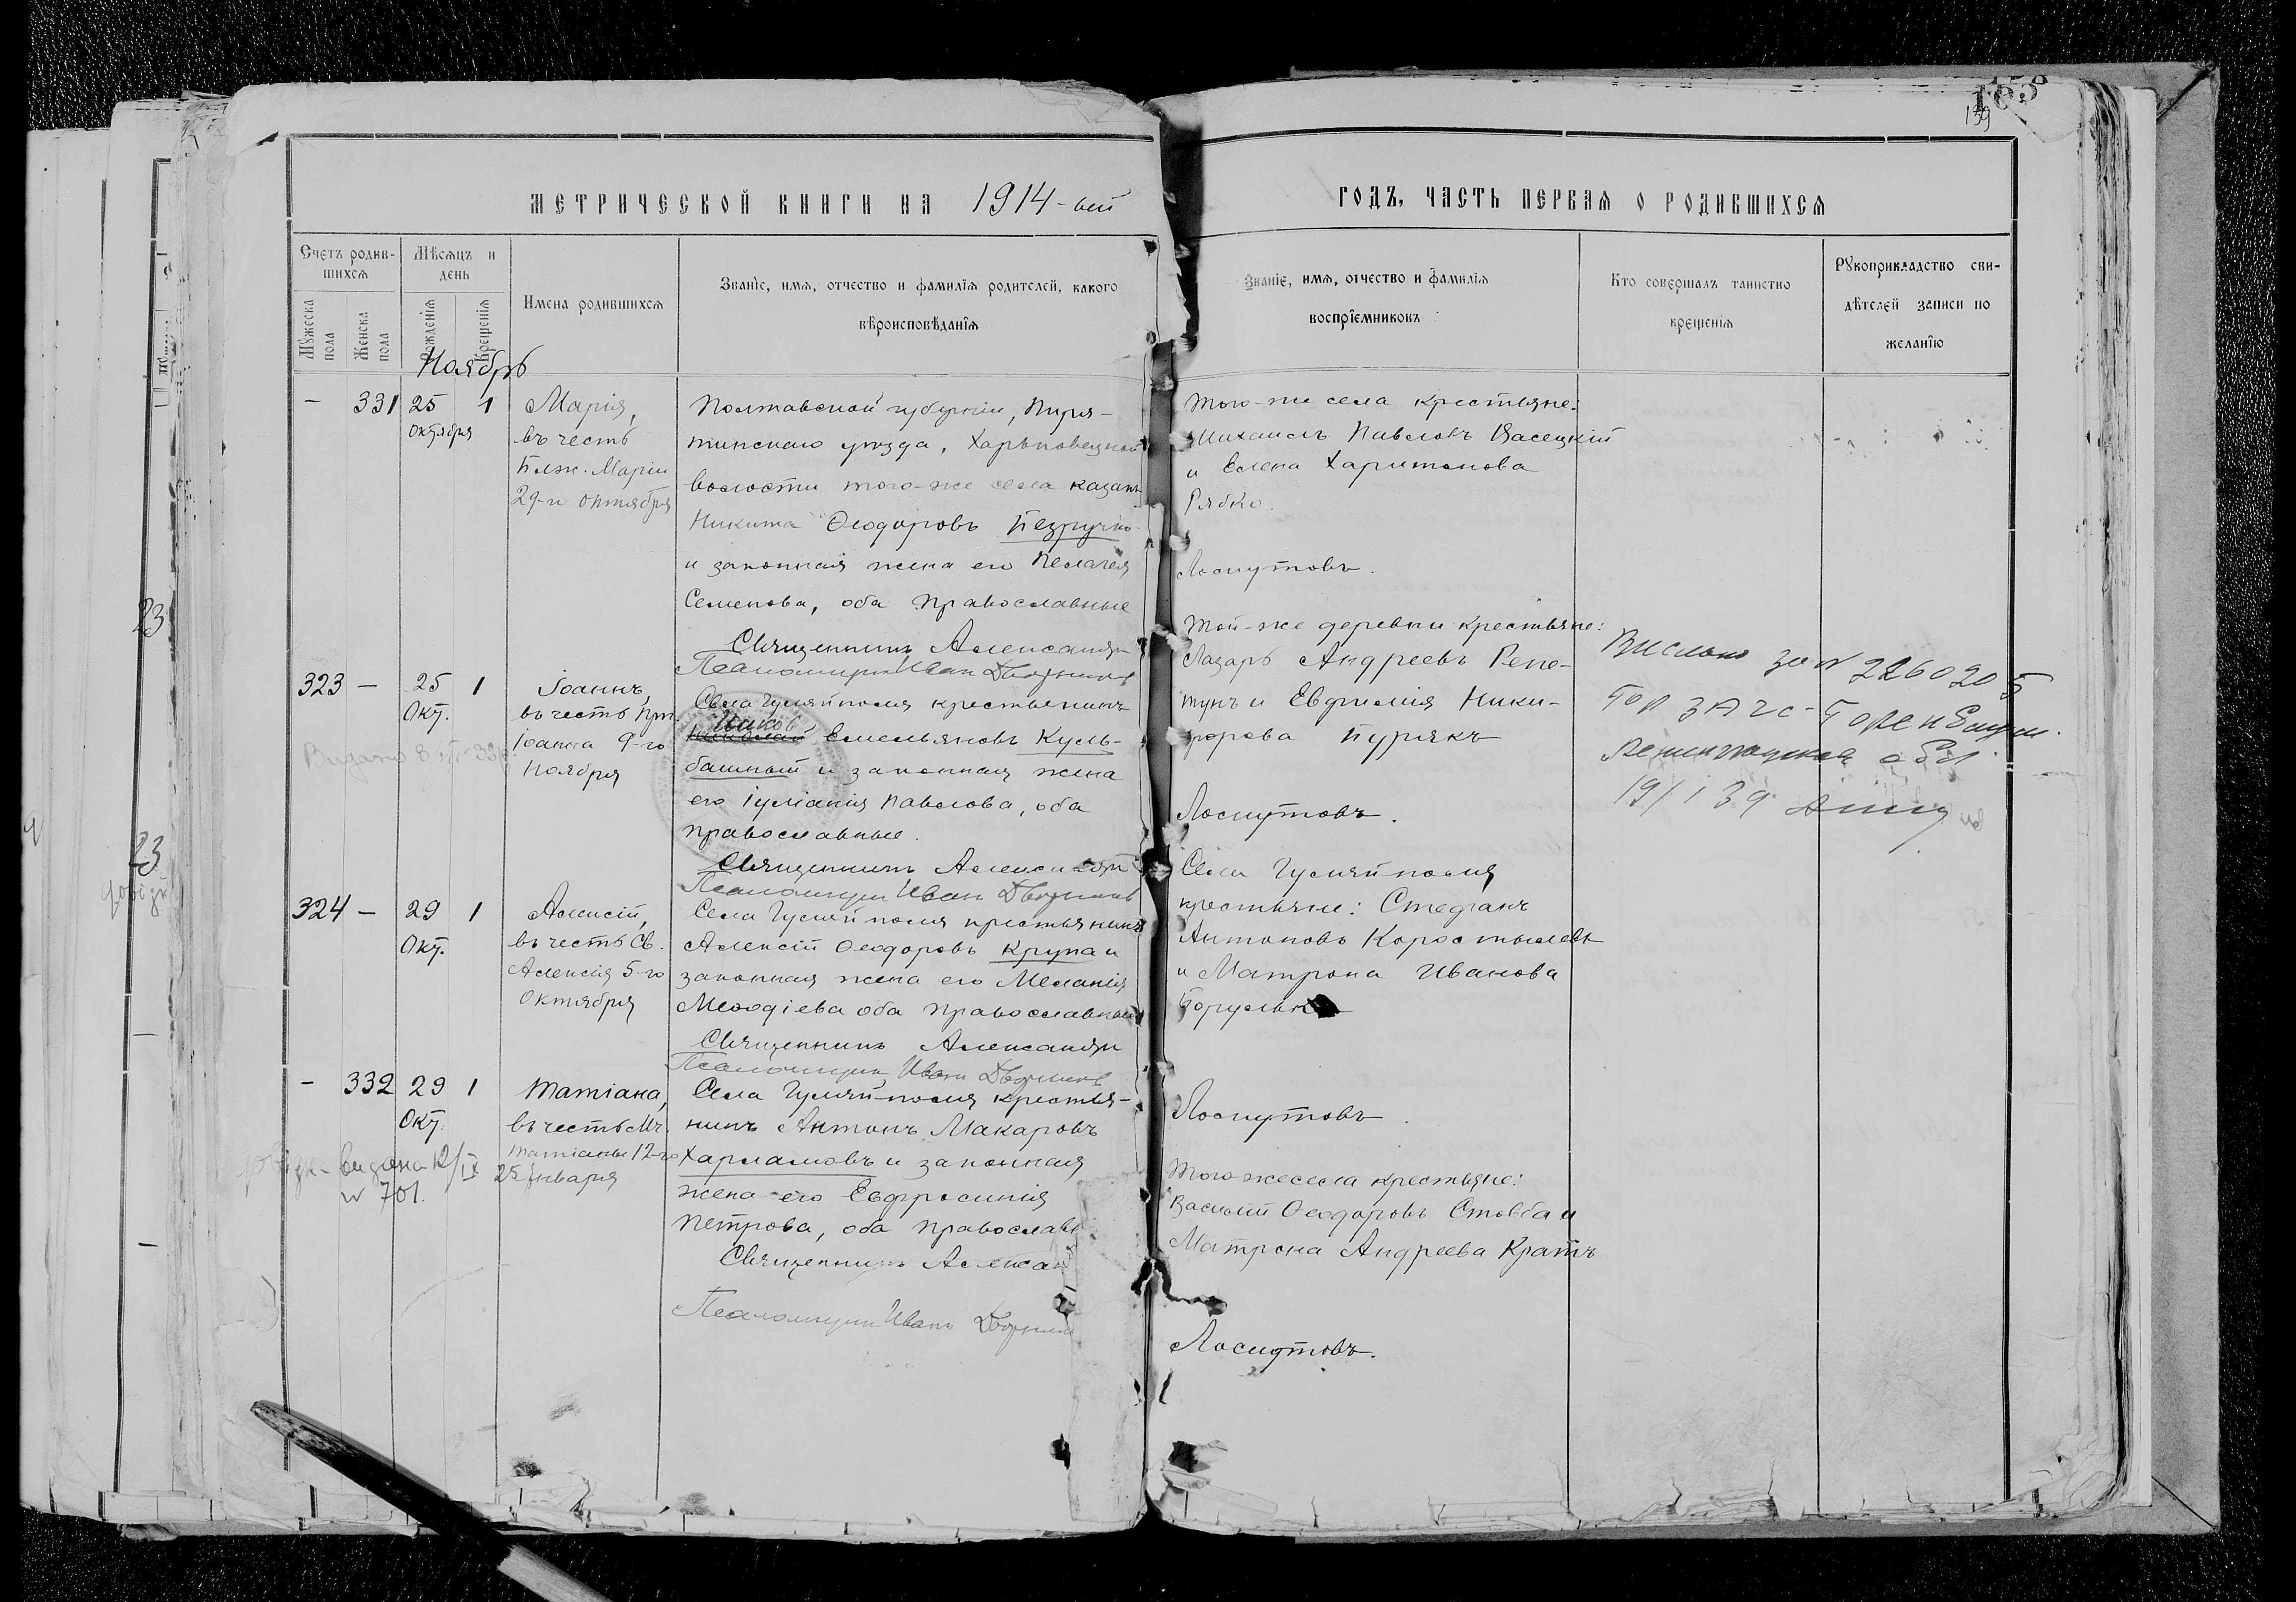 МЕТРИЧЕСКОЙ КНИГИ НА 1914-ый
ГОДЪ, ЧАСТЬ ПЕРВАЯ О РОДИВШИХСЯ
139
Счетъ родив-
шихся
Мѣсяцъ и
день
Мужеска
пола
Женска
пола
Рожденія
Крещенія
Имена родившихся
Званіе, имя, отчество и фамилія родителей, какого
вѣроисповѣданія
Званіе, имя, отчество и фамилія
воспріемниковъ
Кто совершалъ таинство
крещенія
Рукоприкладство сви-
дѣтелей записи по
желанію
Ноябрь
- 331 25 1
октября
Марія,
въ честь
Блж. Маріи
29-го октября
Полтавской губерніи, Пиря-
тинскаго уѣзда, Харьковецкой
волости того-же села казакъ
Никита Ѳеодоровъ Безручко
и законная жена его Пелагея
Семенова, оба православные
Священникъ Александръ
Псаломщикъ Иванъ Дворник
Того-же села крестьяне:
Михаилъ Павловъ Васецкій
и Елена Харитонова
Рябко.
Лоскутовъ.
323 - 25 1
Окт.
Іоаннъ,
въ честь Прп.
Іоанна 9-го
Ноября
Видано
Села Гуляйполя крестьянинъ
Николай Емельяновъ Куль-
башный и законная жена
его Іуліанія Павлова, оба
православные.
Священникъ Александръ
Псаломщикъ Иванъ Дворник
Той-же деревни крестьяне:
Лазарь Андреевъ Репе-
тунъ и Евфимія Ники-
форова Бурякъ
Лоскутовъ.
Вислано за N 2260205
Гор ЗАГС
Ленинградская обл.
19/I 39
324 - 29 1
Окт.
Алексій,
въ честь Св.
Алексія 5-го
Октября
Села Гуляйполя крестьянинъ
Алексій Ѳеодоровъ Крупа и
законная жена его Меланія
Меѳодіева оба православные
Священникъ Александръ
Псаломщикъ Иванъ Дворник
Села Гуляйполя
крестьяне: Стефанъ
Антоновъ Коростылевъ
и Матрона Иванова
Лоскутовъ.
- 332 29 1
Окт.
Татіана,
въ честь Мч.
Татіаны 12-го
Января
видана 12/IX 25
N 701.
Села Гуляй-поля крестья-
нинъ Антонъ Макаровъ
Харламовъ и законная
жена его Евфросинія
Петрова, оба православ
Священникъ Алексан
Псаломщикъ Иванъ Дворник
Того же села крестьяне:
Василій Ѳеодоровъ Стовба и
Матрона Андреева Кратъ
Лоскутовъ.
23
23